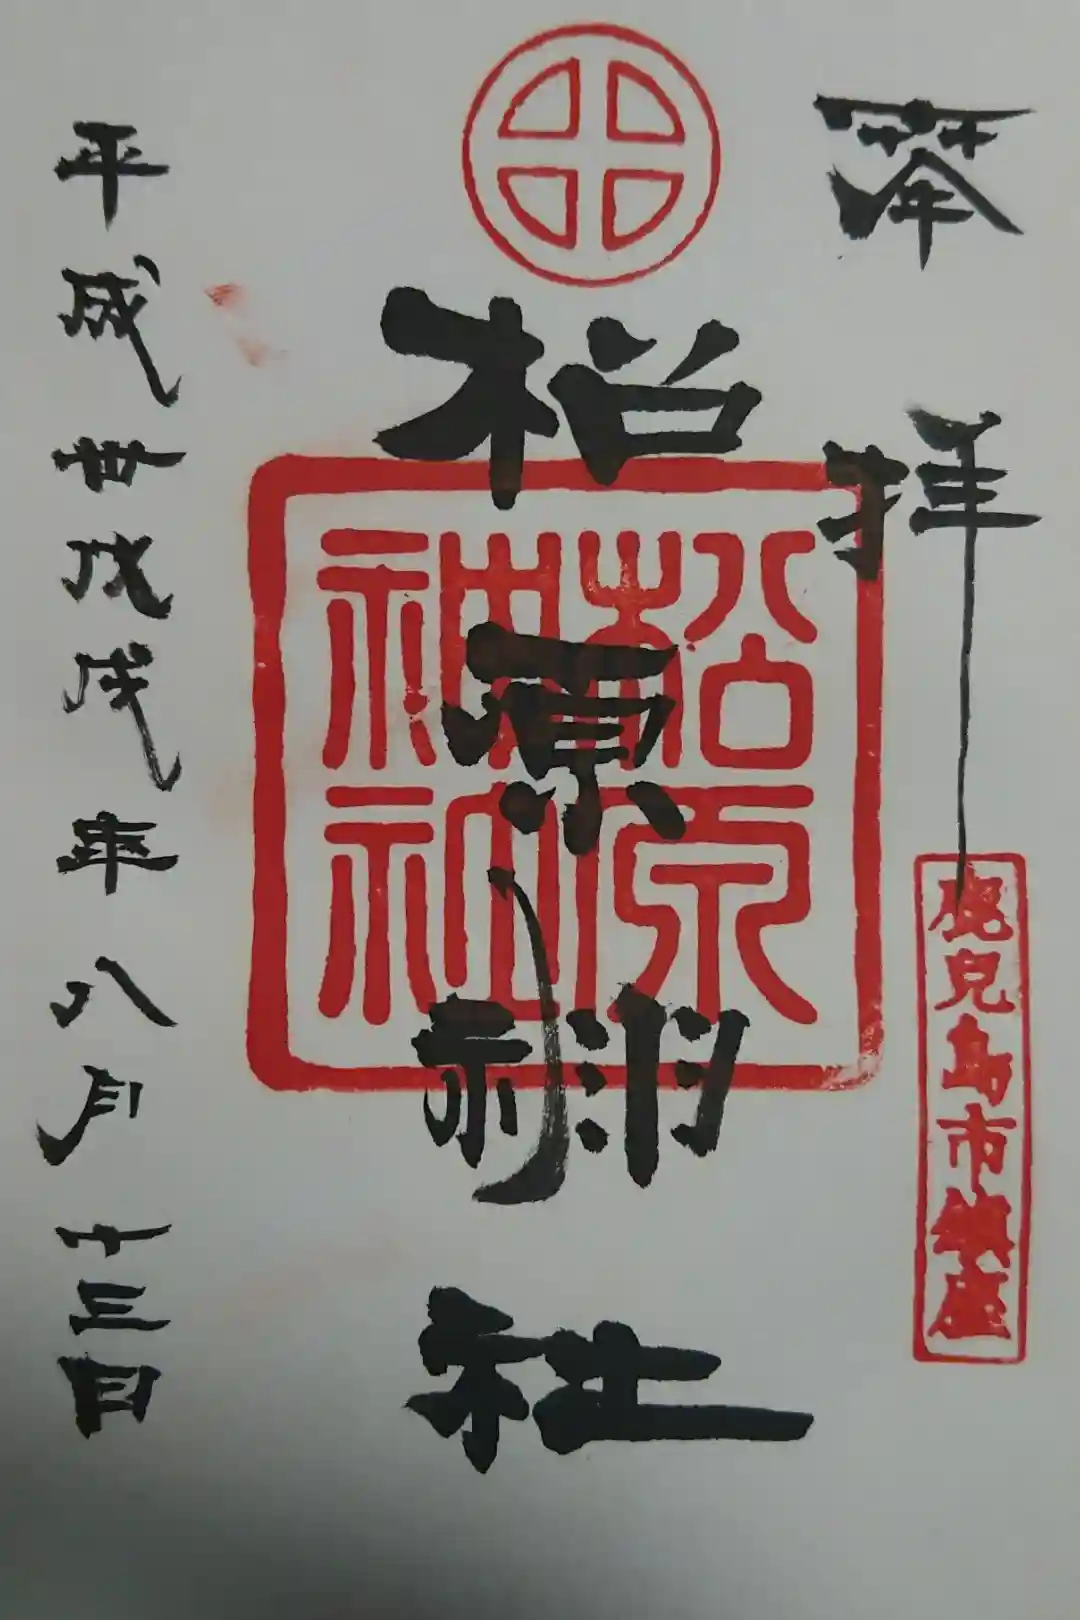 奉拝
鹿児島市鎮座
松原神社
松原
神社
平成卅戊戌年八月十三日